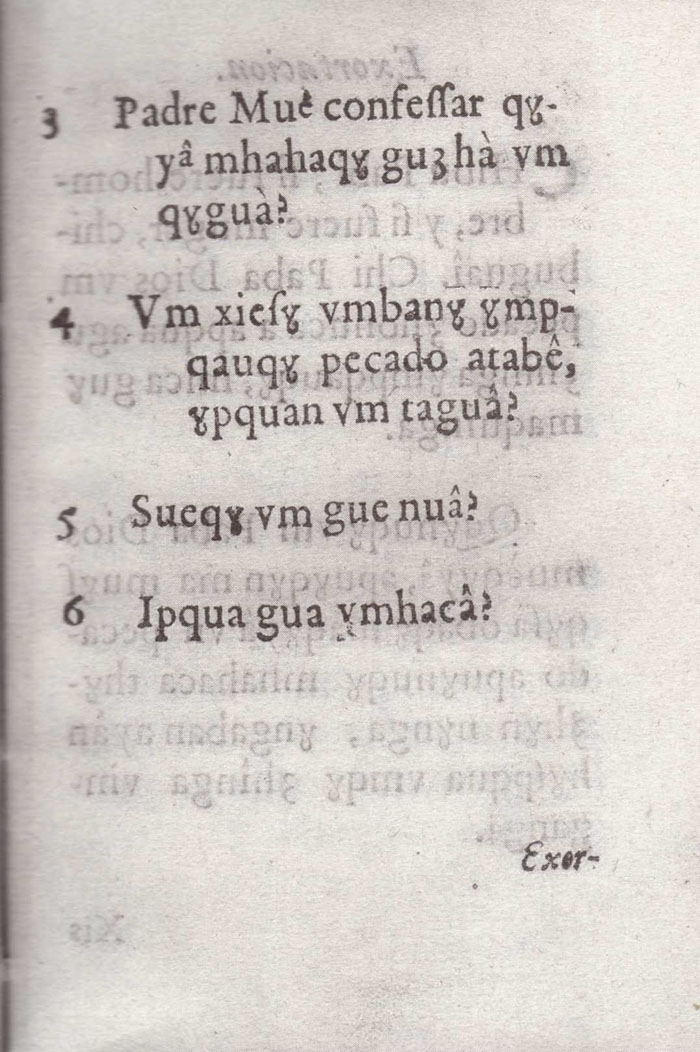 3 Padre Muê confeſſar qɣ-
yâ mhahaqɣ guʒhà vm
qɣguà?
4 Vm xieſɣ vmbanɣ ɣmp-
qauqɣ pecado atabê,
ɣpquàn vm taguâ?
5 Sueqɣ vm gue nuâ?
6 Ipqua gua vmhacâ?
Exor-